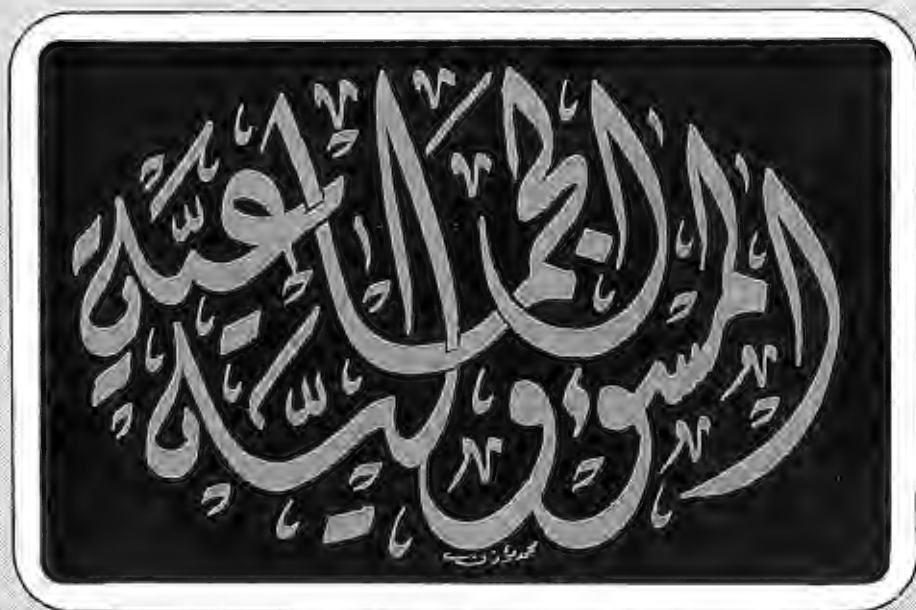 المسؤولية
الجماعية
محمد